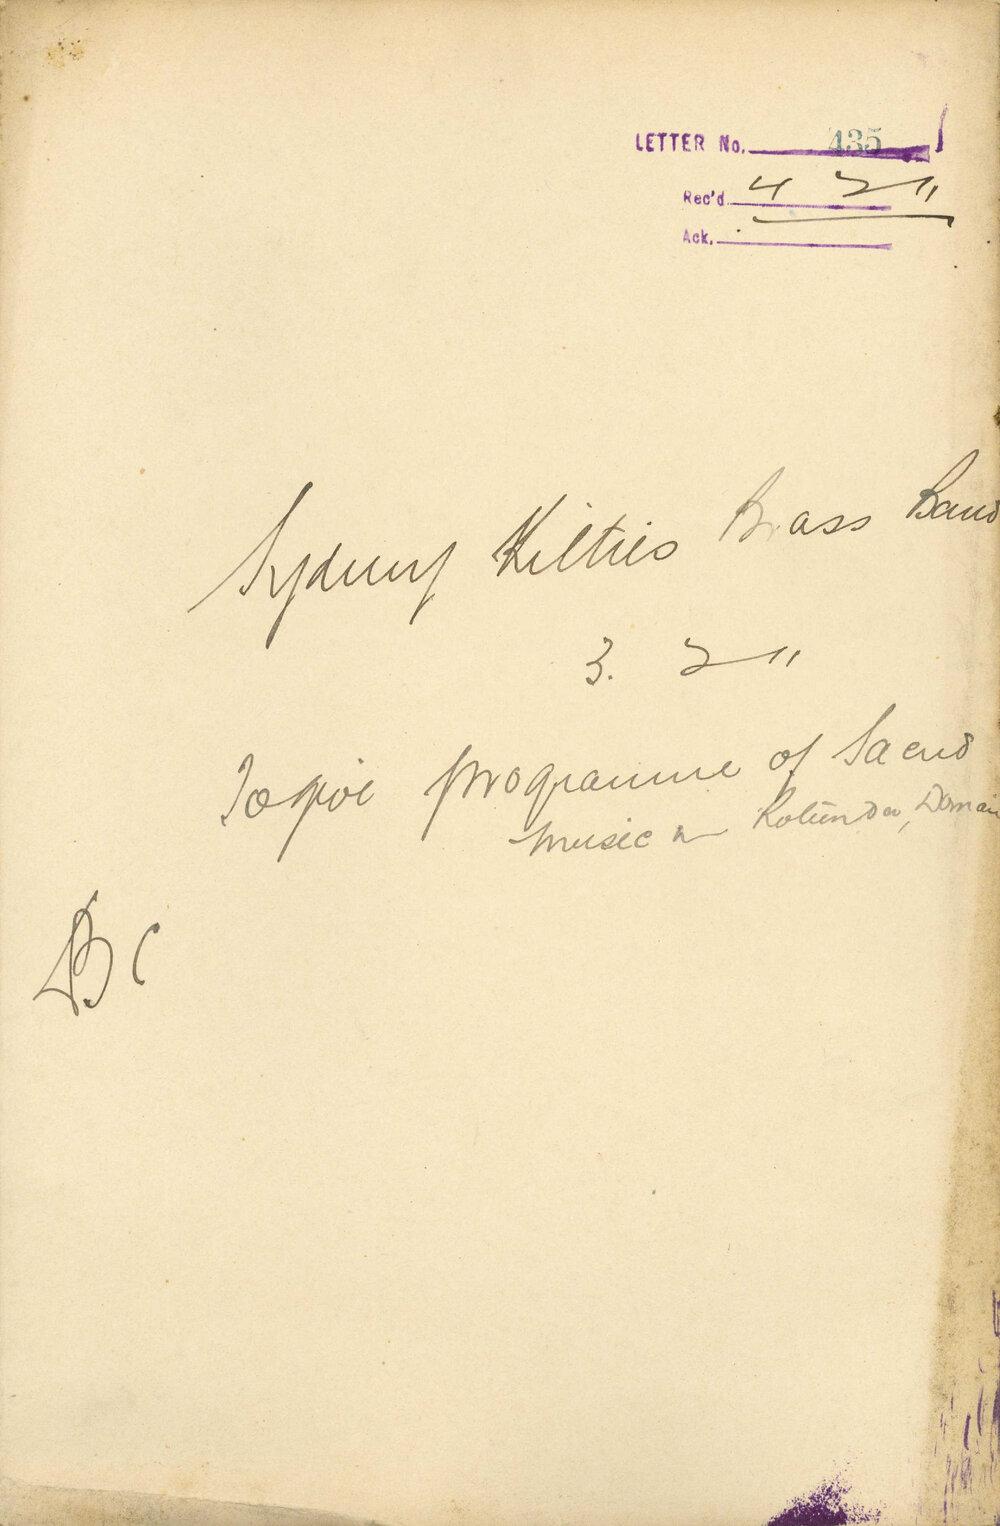 LETTER No. 435
Rec'd. 4 2 11
Ack.
Sydney Kilties Brass Band
3. 2 11
To give programme of Sacred
Music in Rotunda, Domain
BC